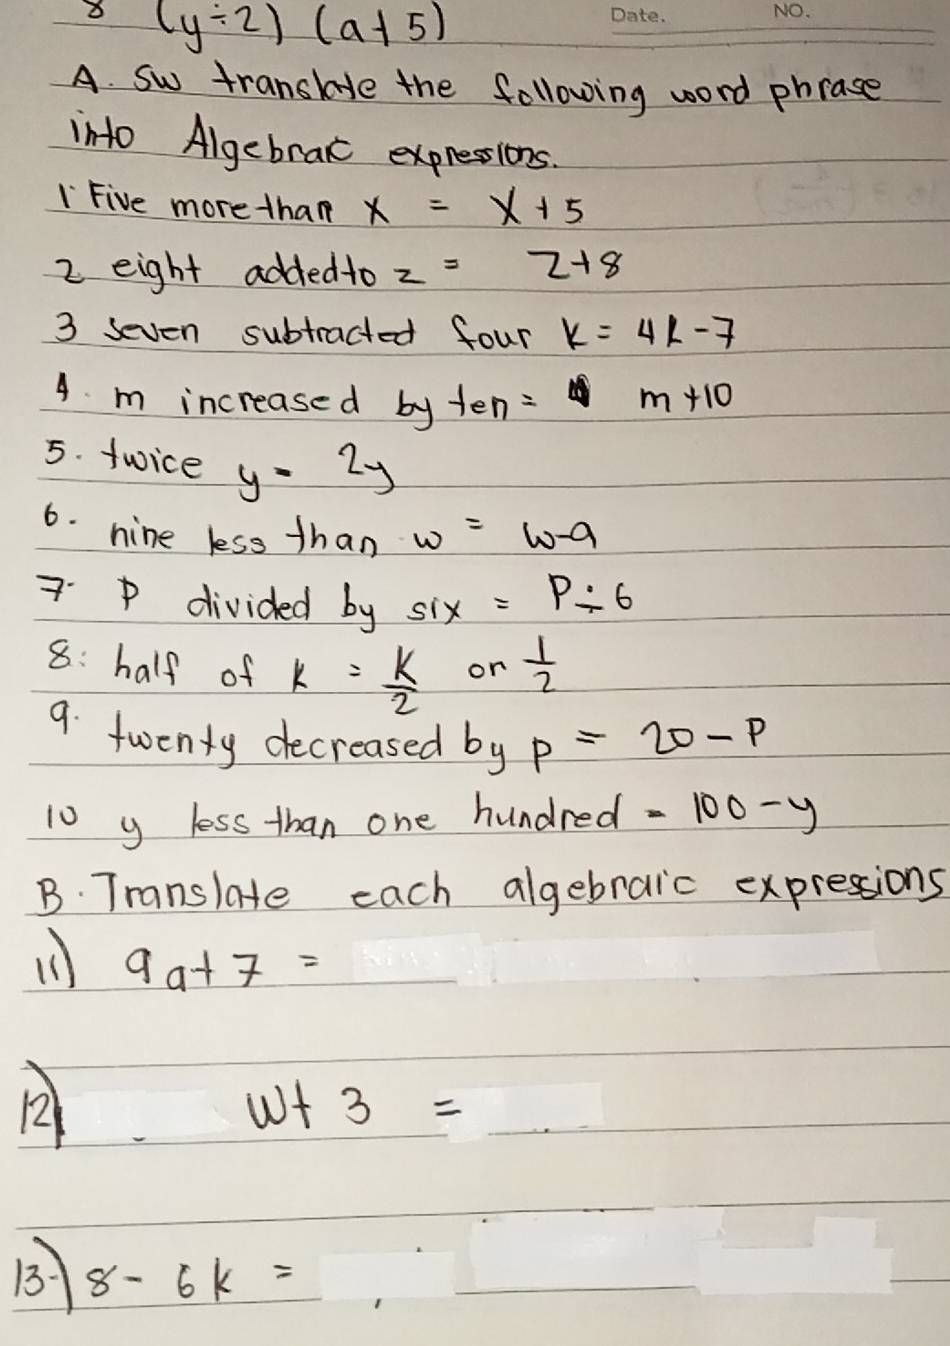 8 (y÷2) (a+5)
Date. NO.
A. SW translate the following word phrase
into Algebraic expressions.
1. Five more than x = x+5
2 eight added to z = z+8
3 seven subtracted four k = 4k-7
4. m increased by ten = m+10
5. twice y = 2y
6. nine less than w = w-9
7. P divided by six = P÷6
8: half of k = k/2 or 1/2
9. twenty decreased by p = 20-P
10 y less than one hundred = 100-y
B. Translate each algebraic expressions
11) 9a+7 =
12) w+ 3 =
13-) 8- 6k =